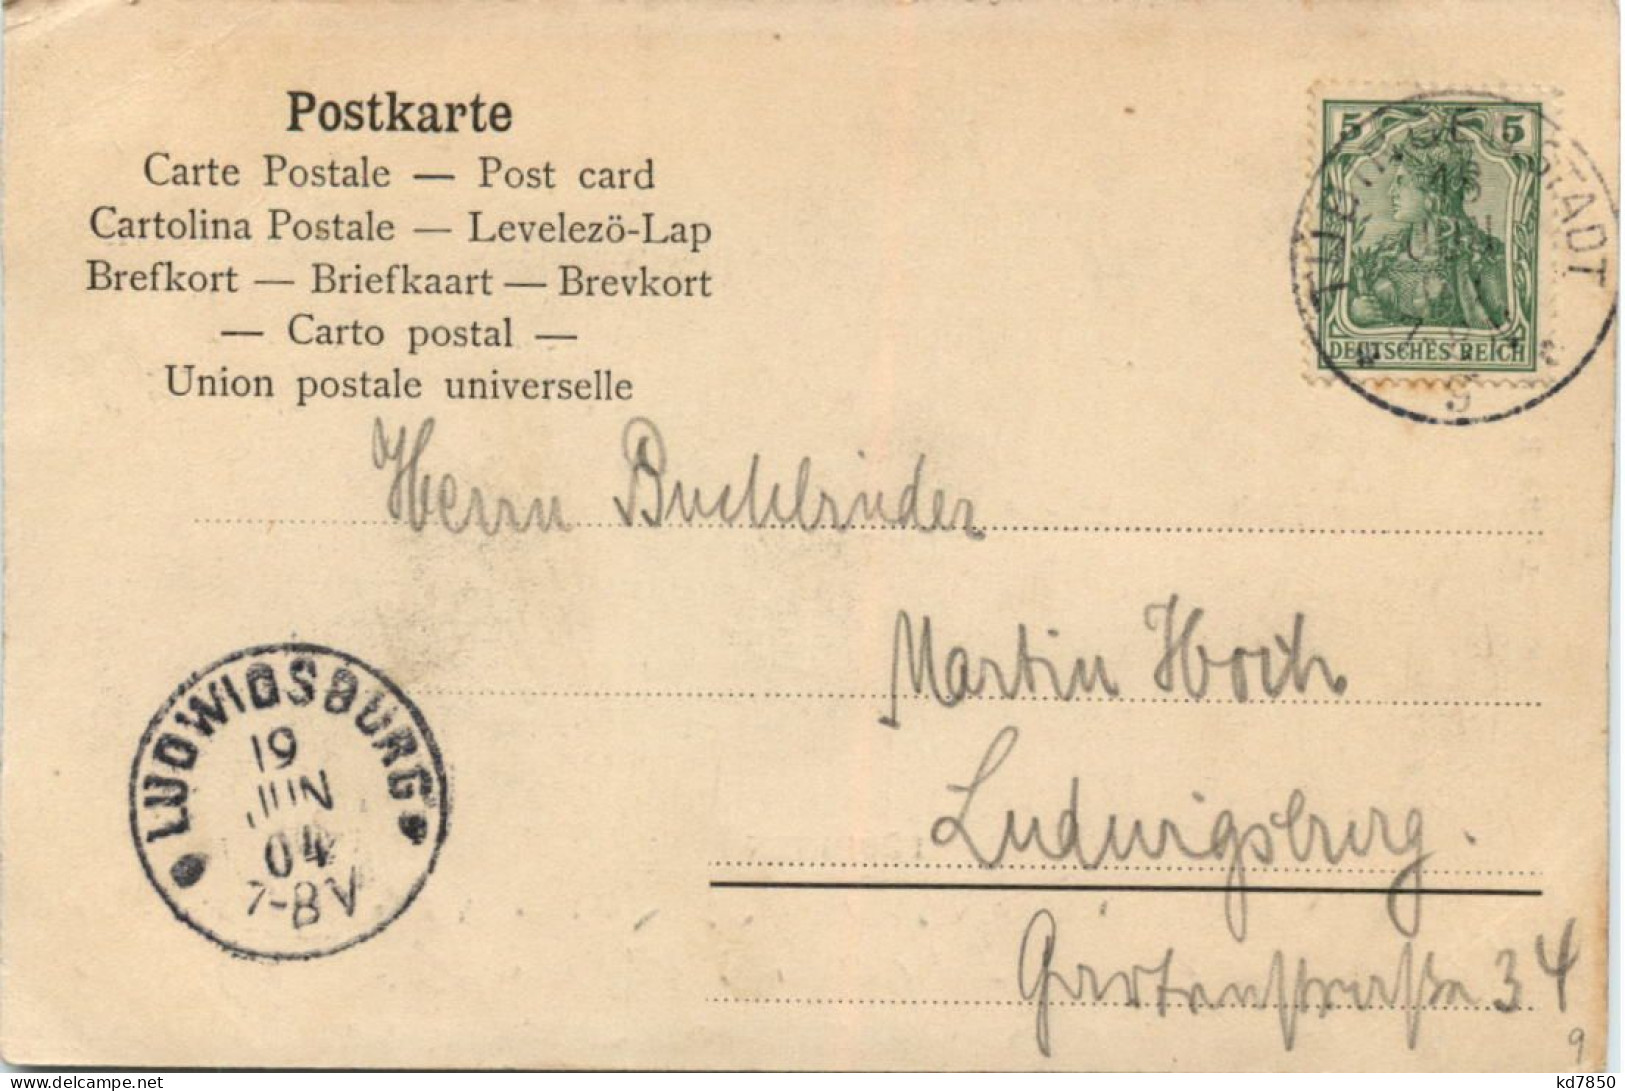 Postkarte
Carte Postale — Post card
Cartolina Postale — Levelezö-Lap
Brefkort — Briefkaart — Brevkort
— Carto postal —
Union postale universelle
5 5
DEUTSCHES REICH
STADT
Herrn
Martin
Ludwigsburg.
Gartenstraße 34
9
LUDWIGSBURG
19
JUN
04
7-8 V
www.delcampe.net
kd7850